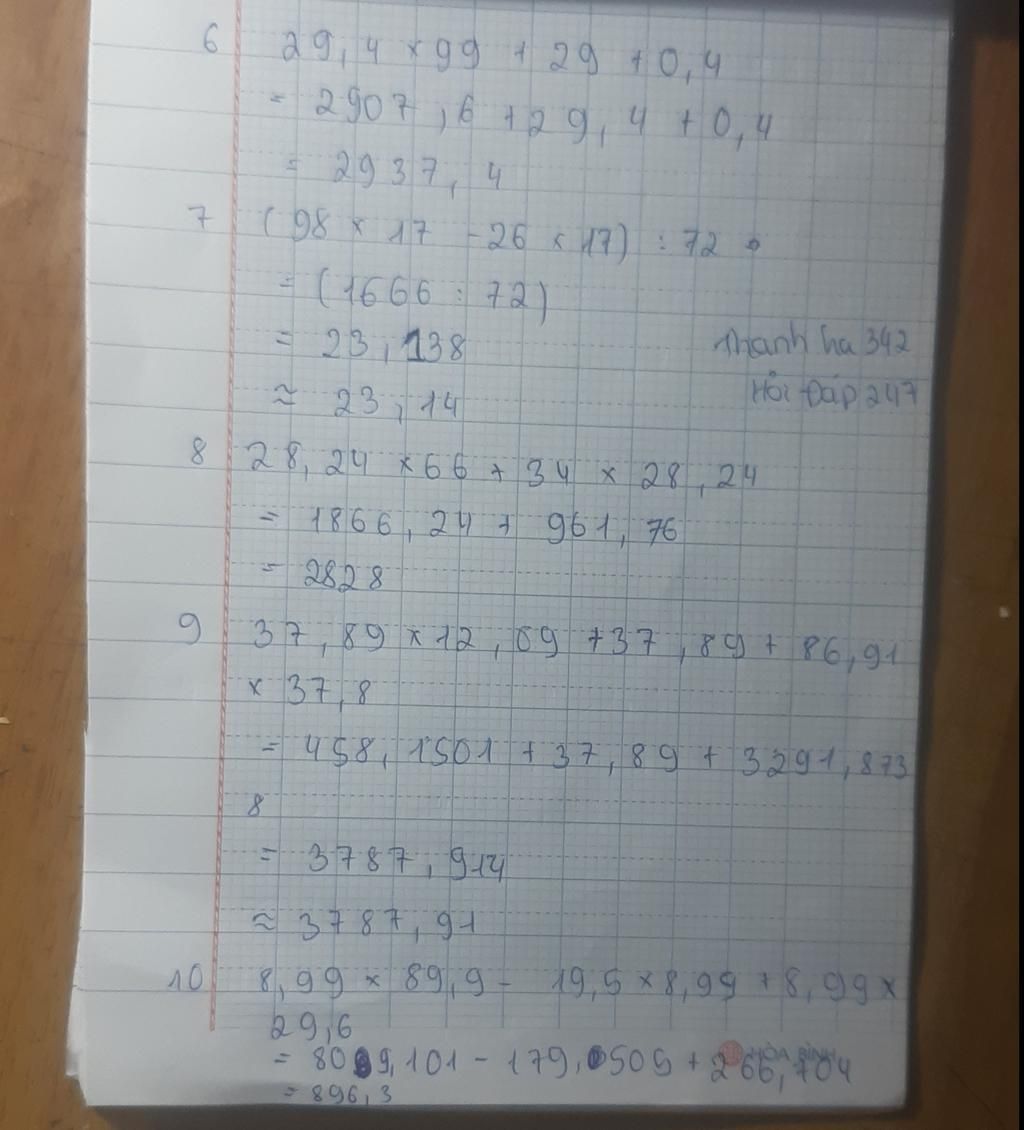 6 29,4 × 99 + 29 + 0,4
= 2907,6 + 29,4 + 0,4
= 2937,4
7 (98 × 17 - 26 × 17) : 72
= (1666 : 72)
= 23,138
Thanh ha 342
≈ 23,14
Hỏi Đáp 247
8 28,24 × 66 + 34 × 28,24
= 1866,24 + 961,76
= 2828
9 37,89 × 12,09 + 37,89 + 86,91
× 37,8
= 458,1501 + 37,89 + 3291,873
8
= 3787,914
≈ 3787,91
10 8,99 × 89,9 - 19,5 × 8,99 + 8,99 ×
29,6
= 809,101 - 179,0505 + 266,704
HÒA BÌNH
= 896,3